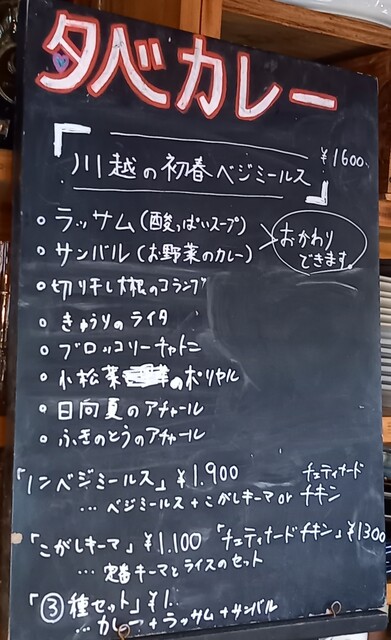 夕べカレー
「川越の初春ベジミールス」 ¥1600
○ ラッサム(酸っぱいスープ)
○ サンバル(お野菜のカレー)
おかわり
できます。
○ 切り干し大根のコランブ
○ きゅうりのライタ
○ ブロッコリーチャトニ
○ 小松菜のポリヤル
○ 日向夏のアチャール
○ ふきのとうのアチャール
「ノンベジミールス」¥1.900
… ベジミールス+こがしキーマ or チェティナードチキン
「こがしキーマ」¥1.100 「チェティナードチキン」¥1300
… 定番キーマとライスのセット
「③種セット」¥1.
… カレー+ラッサム+サンバル